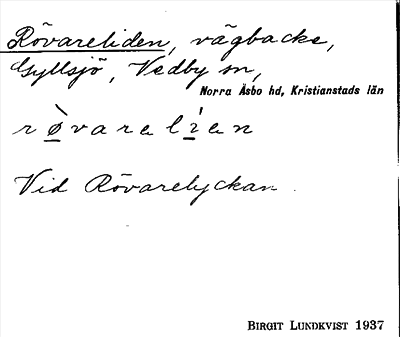 Rövareliden, vägbacke,
Gyllsjö, Vedby sn,
Norra Åsbo hd, Kristianstads län
rø̀varelíen
Vid Rövarelyckan.
BIRGIT LUNDKVIST 1937